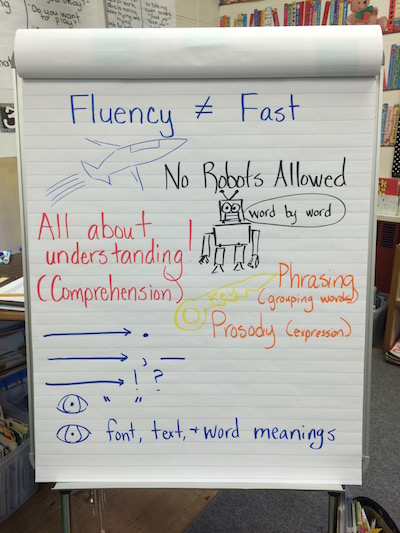 Do you want to play?
Fluency ≠ Fast
No Robots Allowed
word by word
All about understanding!
(Comprehension)
Key
Phrasing
(grouping words)
Prosody (expression)
→ .
→ , —
→ ! ?
“ ”
font, text, + word meanings